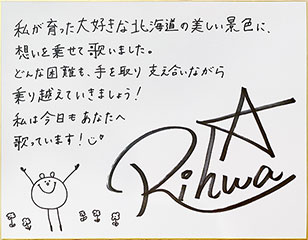 私が育った大好きな北海道の美しい景色に、
想いを乗せて歌いました。
どんな困難も、手を取り支え合いながら
乗り越えていきましょう！
私は今日もあなたへ
歌っています！
Rihwa